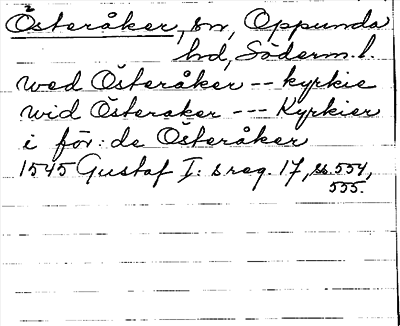 Österåker, sn, Oppunda
hd, Söderm. l.
wed Österåker -- kyrkie
wid Österaker --- Kyrkier
i för: de Österåker
1545 Gustaf I: s reg. 17, ss. 554,
555.